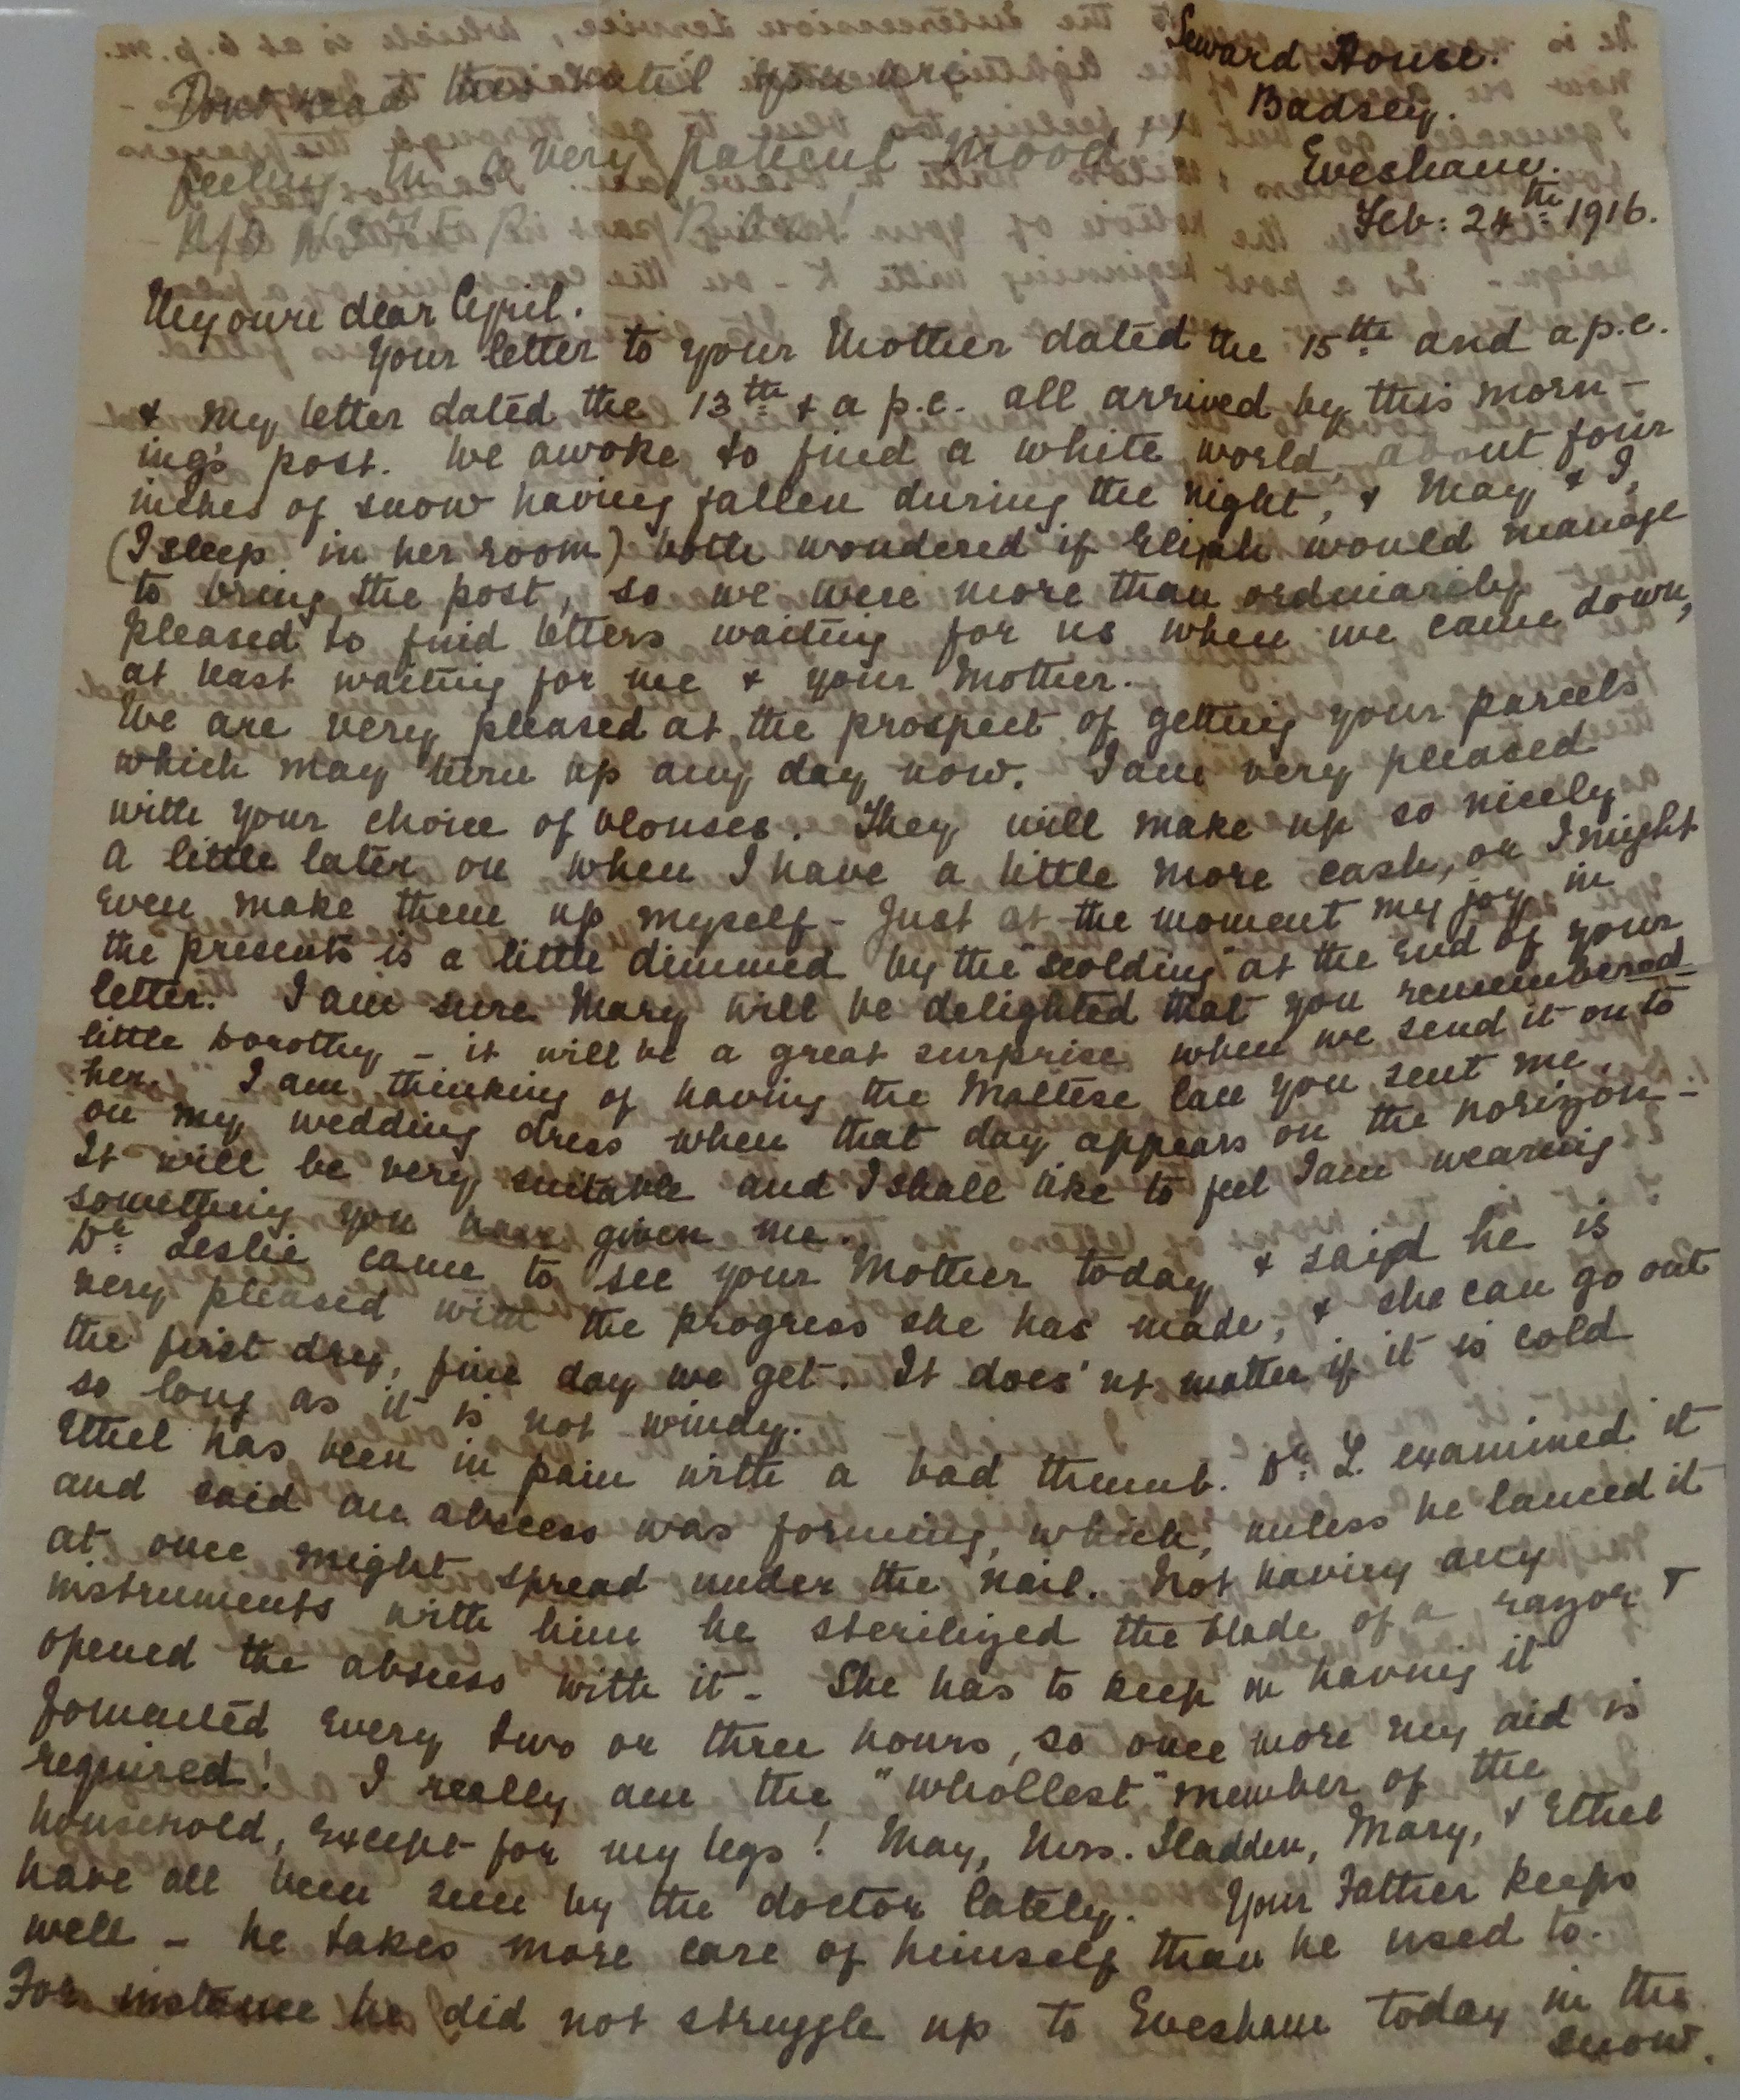 Seward House.
Badsey.
Evesham.
Feb: 24th 1916.
Don't read this until you are
feeling in a very patient mood,
My owne dear Cyril.
Your letter to your Mother dated the 15th and a p.c.
& my letter dated the 13th & a p.c. all arrived by this morn-
ing's post. We awoke to find a white world about four
inches of snow having fallen during the night, & May & I,
(I sleep in her room) both wondered if Elijah would manage
to bring the post, so we were more than ordinarily
pleased to find letters waiting for us when we came down,
at least waiting for me & your Mother.
We are very pleased at the prospect of getting your parcels
which may turn up any day now. I am very pleased
with your choice of blouses. They will make up so nicely
a little later on when I have a little more cash, or I might
even make them up myself - Just at the moment my joy in
the presents is a little dimmed by the "scolding" at the end of your
letter. I am sure Mary will be delighted that you remembered
little Dorothy - it will be a great surprise when we send it on to
her. I am thinking of having the Maltese lace you sent me
on my wedding dress when that day appears on the horizon -
It will be very suitable and I shall like to feel I am wearing
something you have given me.
Dr: Leslie came to see your Mother today & said he is
very pleased with the progress she has made, & she can go out
the first dry, fine day we get. It does'nt matter if it is cold
so long as it is not windy.
Ethel has been in pain with a bad thumb. Dr: L. examined it
and said an abscess was forming, which, unless he lanced it
at once might spread under the nail. Not having any
instruments with him he sterilized the blade of a razor &
opened the abscess with it - She has to keep on having it
fomented every two or three hours, so once more my aid is
required! I really am the "whollest" member of the
household, except for my legs! May, Mrs. Sladden, Mary, & Ethel
have all been seen by the doctor lately. Your Father keeps
well - he takes more care of himself than he used to.
For instance he did not struggle up to Evesham today in the
snow.